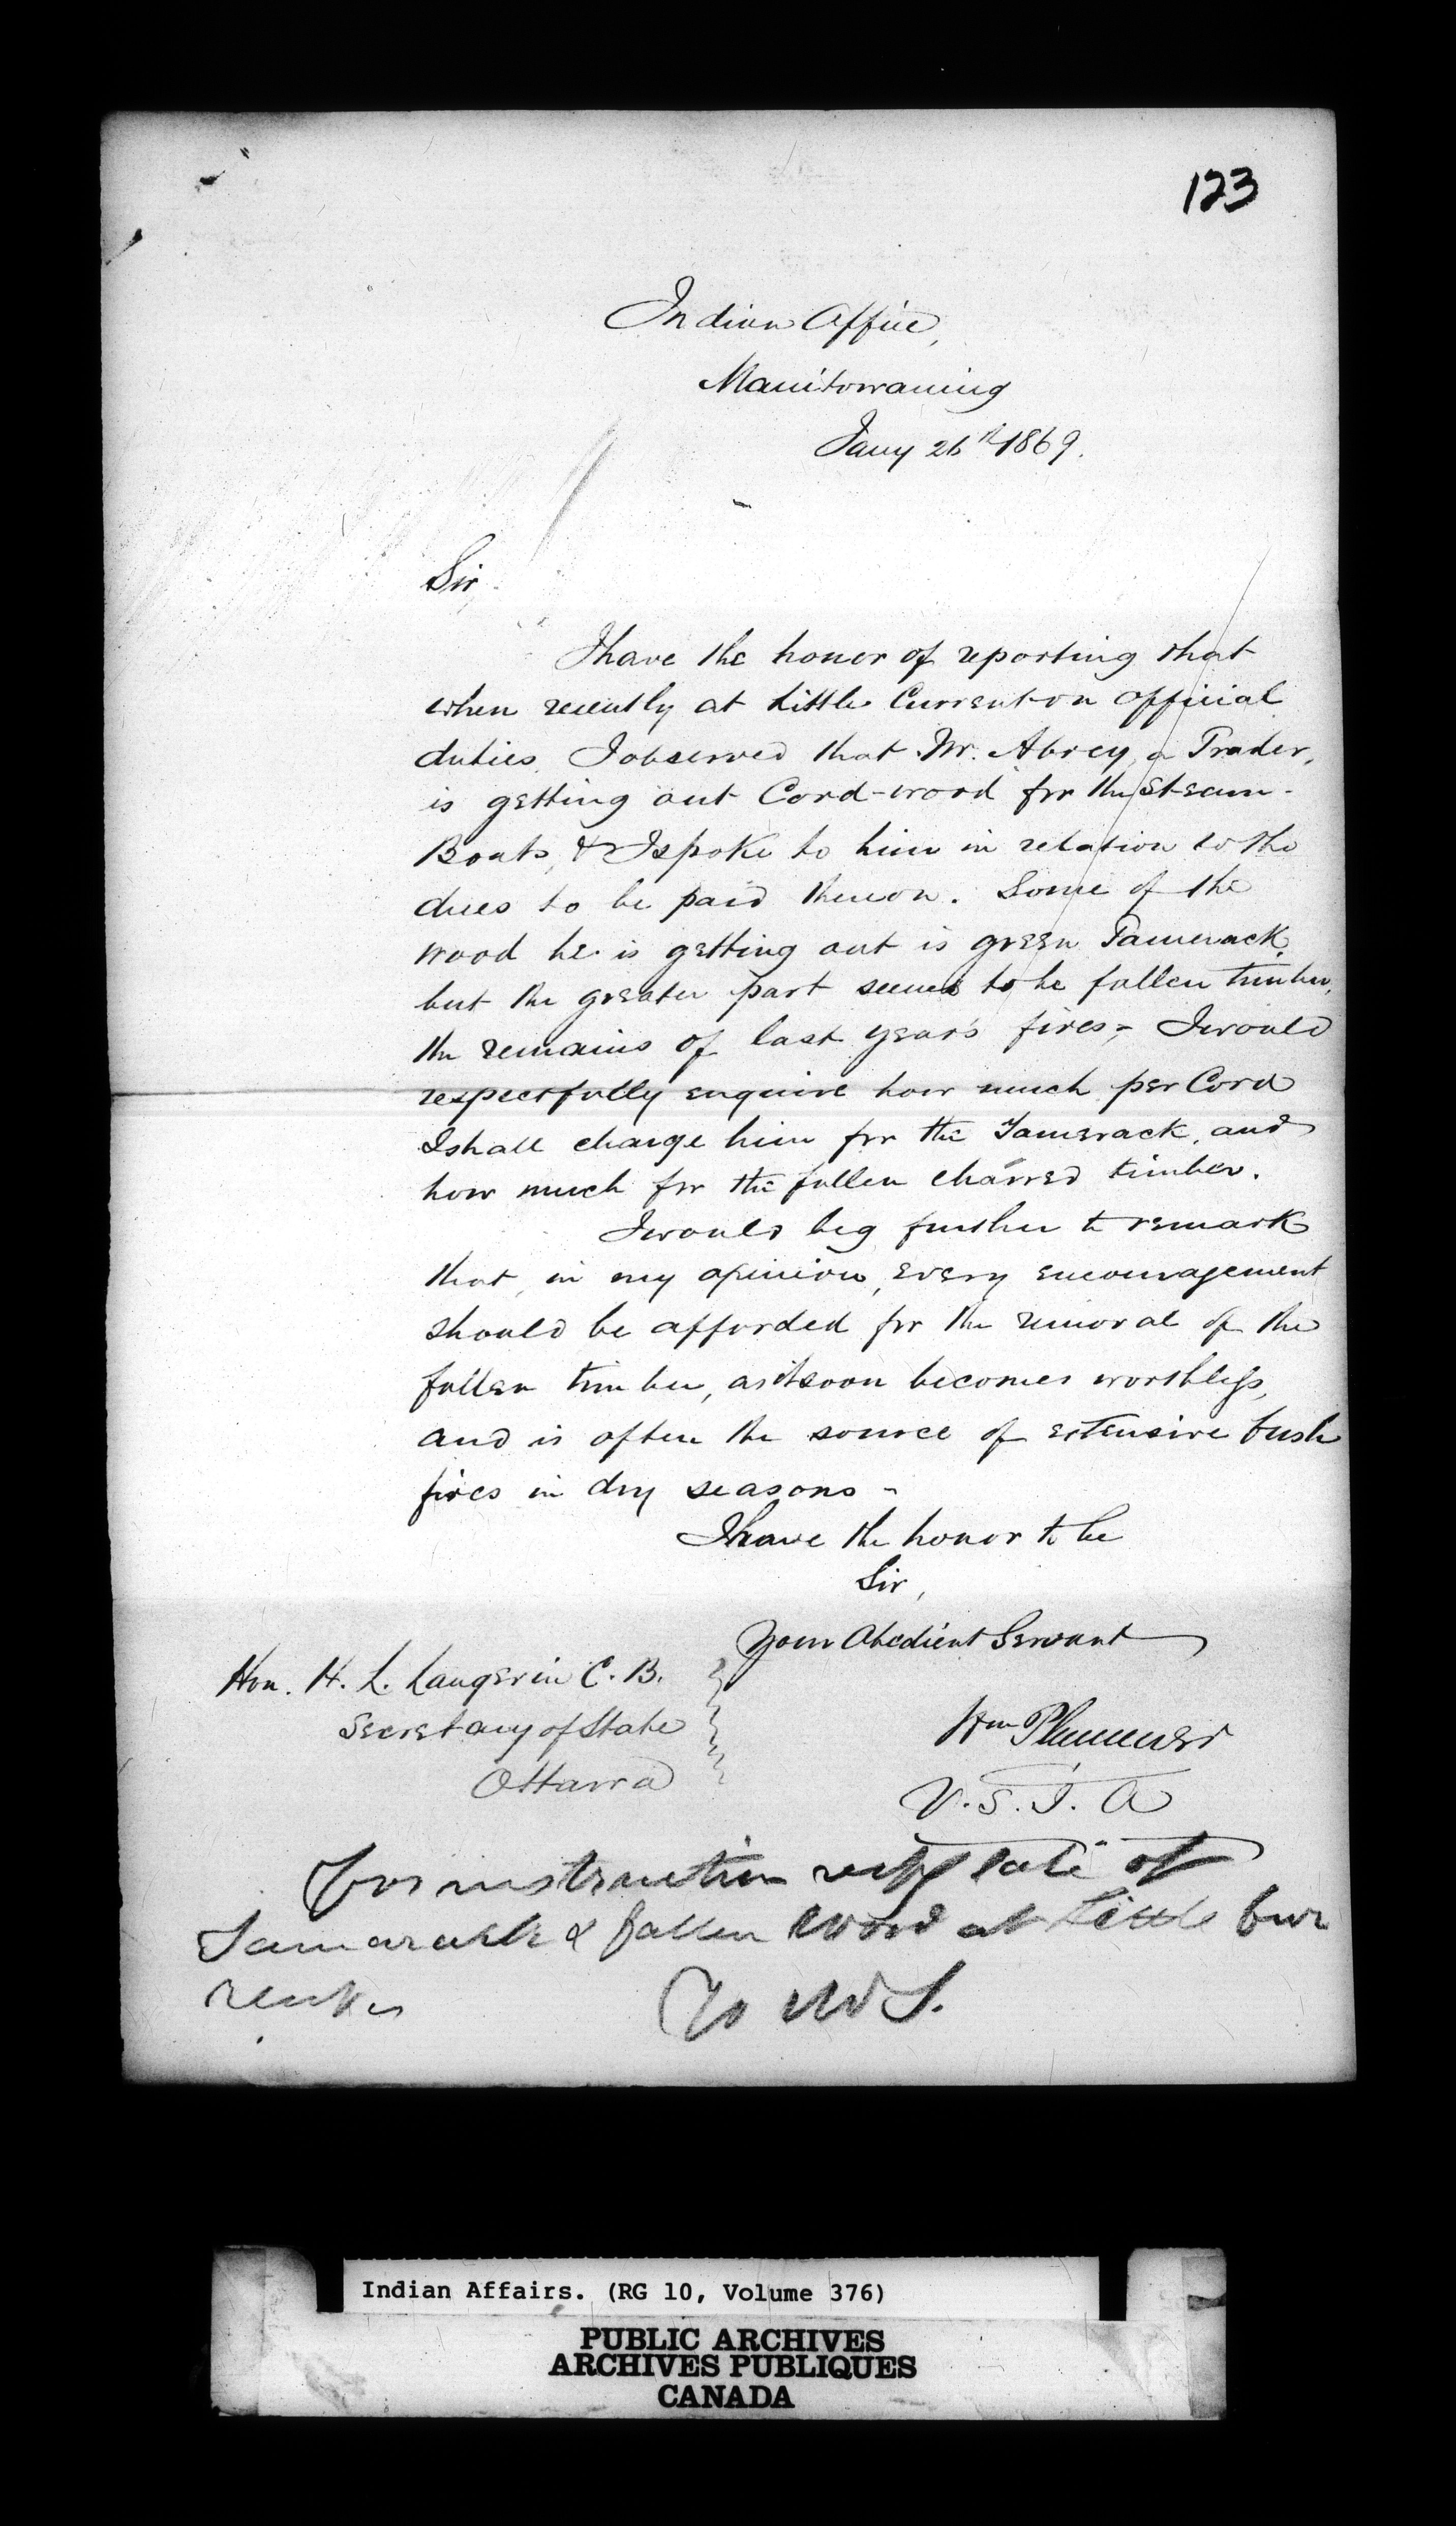 123
Indian Office,
Manitowaning
Jany 26th 1869.
Sir
I have the honor of reporting that
when recently at Little Current on official
duties, I observed that Mr. Abrey, a Trader,
is getting out Cord-wood for the Steam-
Boats, & I spoke to him in relation to the
dues to be paid thereon. Some of the
wood he is getting out is green Tamerack,
but the greater part seems to be fallen timber,
the remains of last year's fires,- I would
respectfully enquire how much per Cord
I shall charge him for the Tamerack, and
how much for the fallen charred timber.
I would beg further to remark
that, in my opinion, every encouragement
should be afforded for the removal of the
fallen timber, as it soon becomes worthless,
and is often the source of extensive bush
fires in dry seasons -
I have the honor to be
Sir,
Your Obedient Servant
Hon. H. L. Langevin C. B.
Secretary of State
Ottawa
Wm Plummer
V. S. I. A
For instruction sale of
Tamarack & fallen wood at Little Cur
Indian Affairs. (RG 10, Volume 376)
PUBLIC ARCHIVES
ARCHIVES PUBLIQUES
CANADA